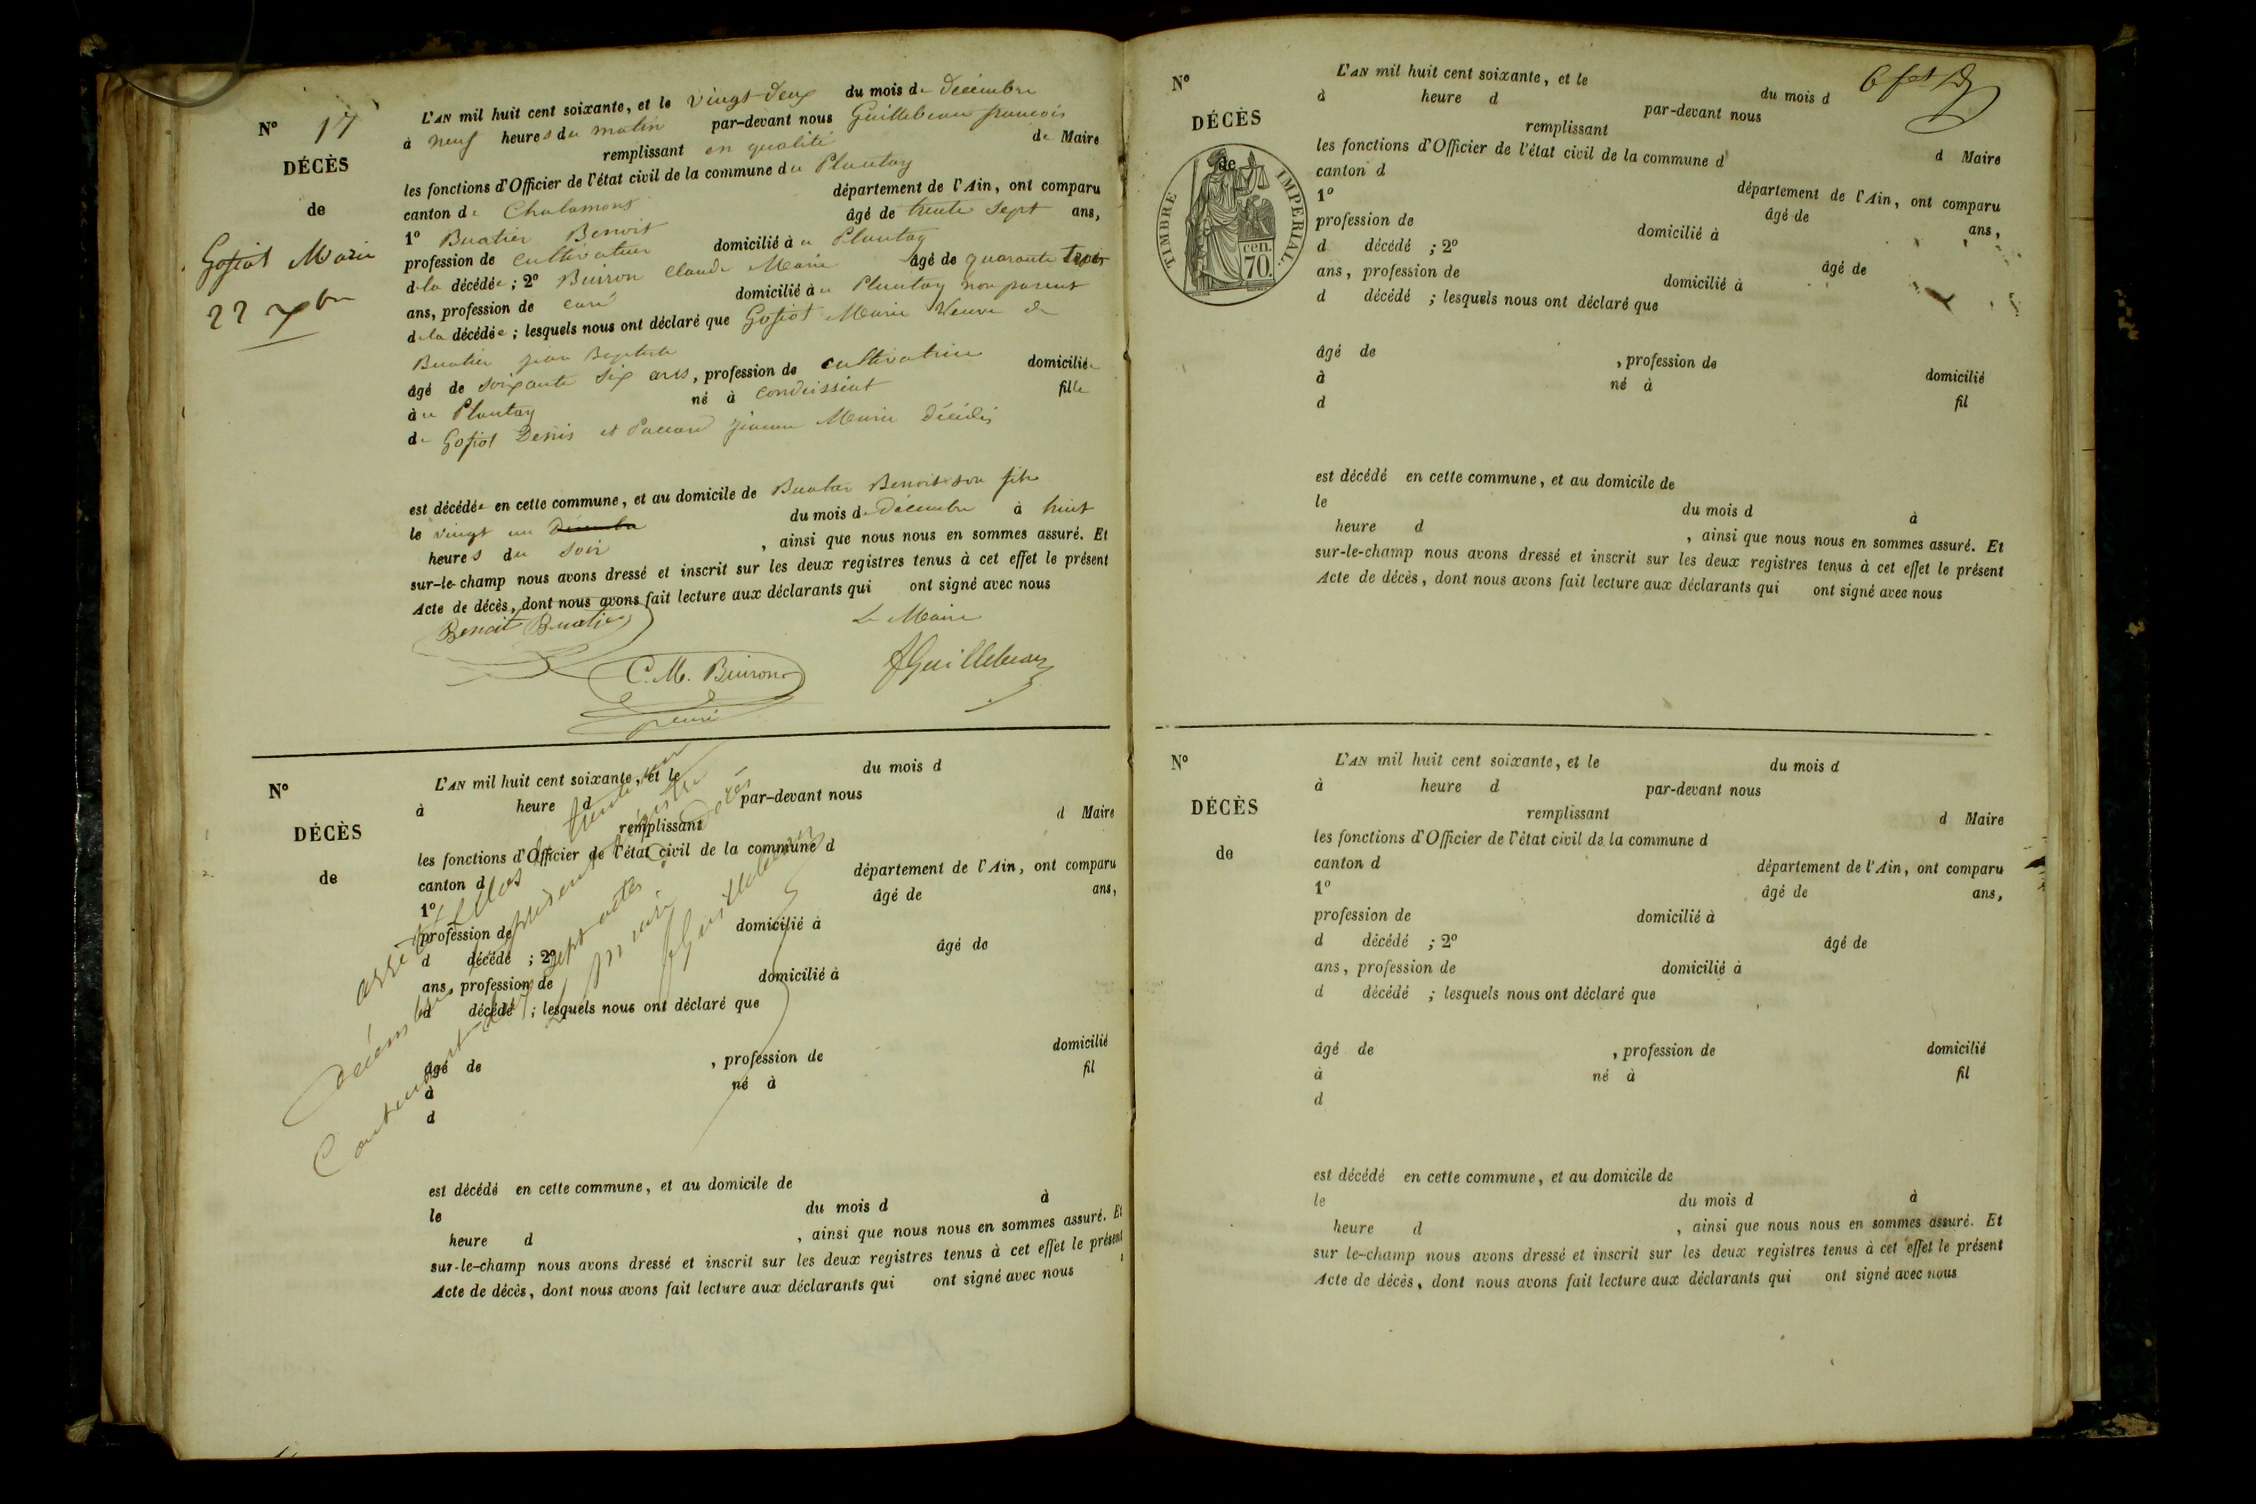 N° 17
DÉCÈS
de
Gofiot Marie
22 Xbre
L'AN mil huit cent soixante, et le vingt deux du mois de Décembre
à neuf heures du matin par-devant nous Guillebeau françois
remplissant en qualité de Maire
les fonctions d'Officier de l'état civil de la commune du Plantay
canton de Chalamont département de l'Ain, ont comparu
1° Buatier Benoit âgé de trente sept ans,
profession de cultivateur domicilié à u Plantay
de la décédée ; 2° Buiron Claude Marie âgé de quarante trois
ans, profession de curé domicilié à u Plantay non parent
de la décédée ; lesquels nous ont déclaré que Gofiot Marie Veuve de
Buatier jean Baptiste
âgé de soixante six ans, profession de cultivatrice domiciliée
à u Plantay né à condeissiat fille
de Gofiot Denis et Paccard jeanne Marie Décédés
est décédée en cette commune, et au domicile de Buatier Benoit son fils
le vingt un Décembre du mois de Décembre à huit
heures du soir , ainsi que nous nous en sommes assuré. Et
sur-le-champ nous avons dressé et inscrit sur les deux registres tenus à cet effet le présent
Acte de décès, dont nous avons fait lecture aux déclarants qui ont signé avec nous
Benoit Buatier Le Maire
C. M. Buiron fGuillebeau
curé
N°
DÉCÈS
de
L'AN mil huit cent soixante, et le du mois d
à heure d par-devant nous
remplissant d Maire
les fonctions d'Officier de l'état civil de la commune d
canton d département de l'Ain, ont comparu
1° âgé de ans,
profession de domicilié à
d décédé ; 2° âgé de
ans, profession de domicilié à
d décédé ; lesquels nous ont déclaré que
âgé de , profession de domicilié
à né à fil
d
est décédé en cette commune, et au domicile de
le du mois d à
heure d , ainsi que nous nous en sommes assuré. Et
sur-le-champ nous avons dressé et inscrit sur les deux registres tenus à cet effet le présent
Acte de décès, dont nous avons fait lecture aux déclarants qui ont signé avec nous
arrêté clos le trente un
Décembre le présent registre
Contenant dix sept actes de Décès
Le Maire
fGuillebeau
6 fet D
N°
DÉCÈS
de
TIMBRE IMPERIAL.
70 cen.
L'AN mil huit cent soixante, et le du mois d
à heure d par-devant nous
remplissant d Maire
les fonctions d'Officier de l'état civil de la commune d
canton d département de l'Ain, ont comparu
1° âgé de ans,
profession de domicilié à
d décédé ; 2° âgé de
ans, profession de domicilié à
d décédé ; lesquels nous ont déclaré que
âgé de , profession de domicilié
à né à fil
d
est décédé en cette commune, et au domicile de
le du mois d à
heure d , ainsi que nous nous en sommes assuré. Et
sur-le-champ nous avons dressé et inscrit sur les deux registres tenus à cet effet le présent
Acte de décès, dont nous avons fait lecture aux déclarants qui ont signé avec nous
N°
DÉCÈS
de
L'AN mil huit cent soixante, et le du mois d
à heure d par-devant nous
remplissant d Maire
les fonctions d'Officier de l'état civil de la commune d
canton d département de l'Ain, ont comparu
1° âgé de ans,
profession de domicilié à
d décédé ; 2° âgé de
ans, profession de domicilié à
d décédé ; lesquels nous ont déclaré que
âgé de , profession de domicilié
à né à fil
d
est décédé en cette commune, et au domicile de
le du mois d à
heure d , ainsi que nous nous en sommes assuré. Et
sur le-champ nous avons dressé et inscrit sur les deux registres tenus à cet effet le présent
Acte de décès, dont nous avons fait lecture aux déclarants qui ont signé avec nous